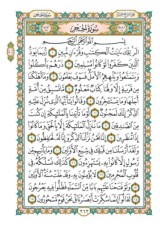 سورة الحجر
الر تلك ءايت الكتب وقرءان مبين ربما يود
الذين كفروا لو كانوا مسلمين ذرهم يأكلوا
ويتمتعوا ويلههم الأمل فسوف يعلمون وما أهلكنا
من قرية إلا ولها كتاب معلوم ما تسبق من أمة
أجلها وما يستءخرون وقالوا يأيها الذي نزل عليه
الذكر إنك لمجنون لو ما تأتينا بالملئكة إن كنت
من الصدقين ما ننزل الملئكة إلا بالحق وما كانوا
إذا منظرين إنا نحن نزلنا الذكر وإنا له لحفظون
ولقد أرسلنا من قبلك في شيع الأولين وما يأتيهم من
رسول إلا كانوا به يستهزءون كذلك نسلكه في
قلوب المجرمين لا يؤمنون به وقد خلت سنة الأولين
ولو فتحنا عليهم بابا من السماء فظلوا فيه يعرجون
لقالوا إنما سكرت أبصرنا بل نحن قوم مسحورون